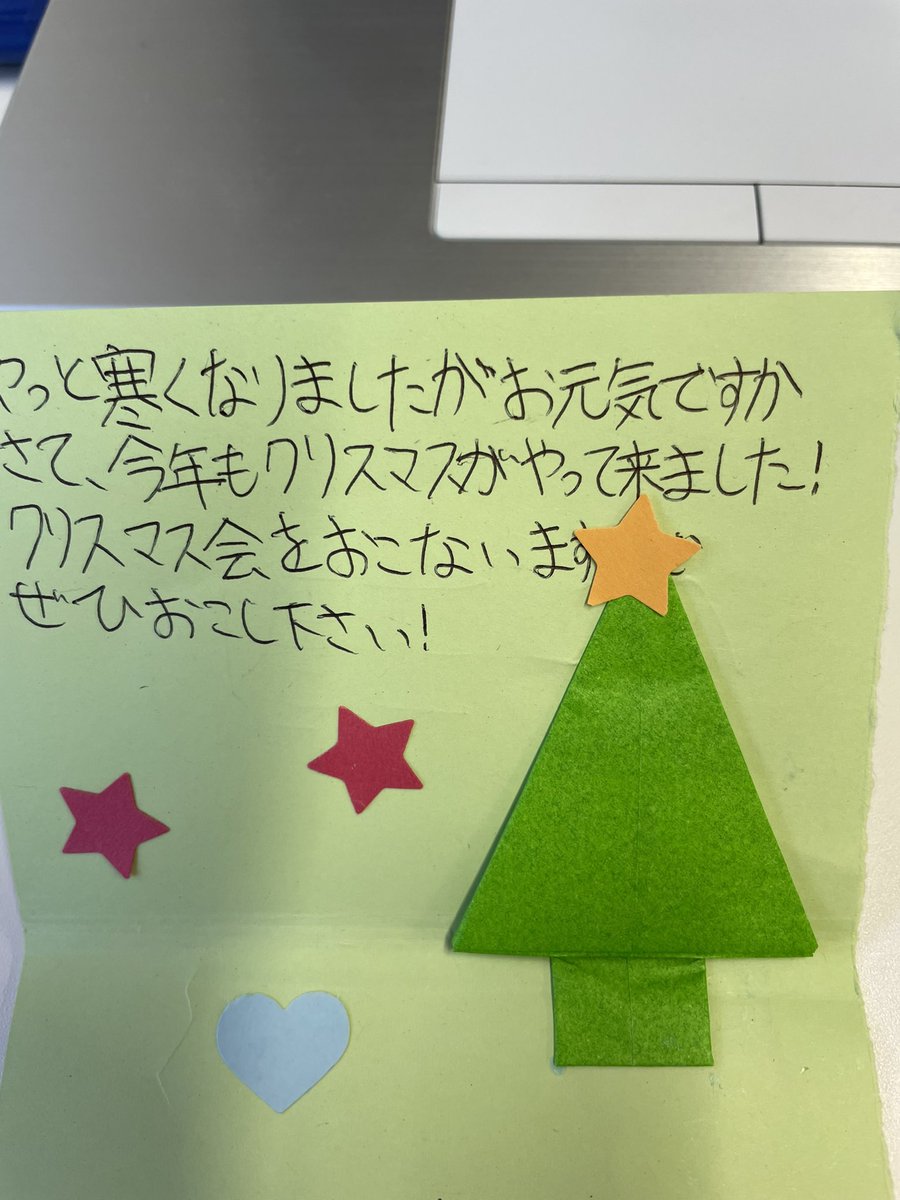 やっと寒くなりましたがお元気ですか
さて、今年もクリスマスがやって来ました!
クリスマス会をおこないます
ぜひおこし下さい!